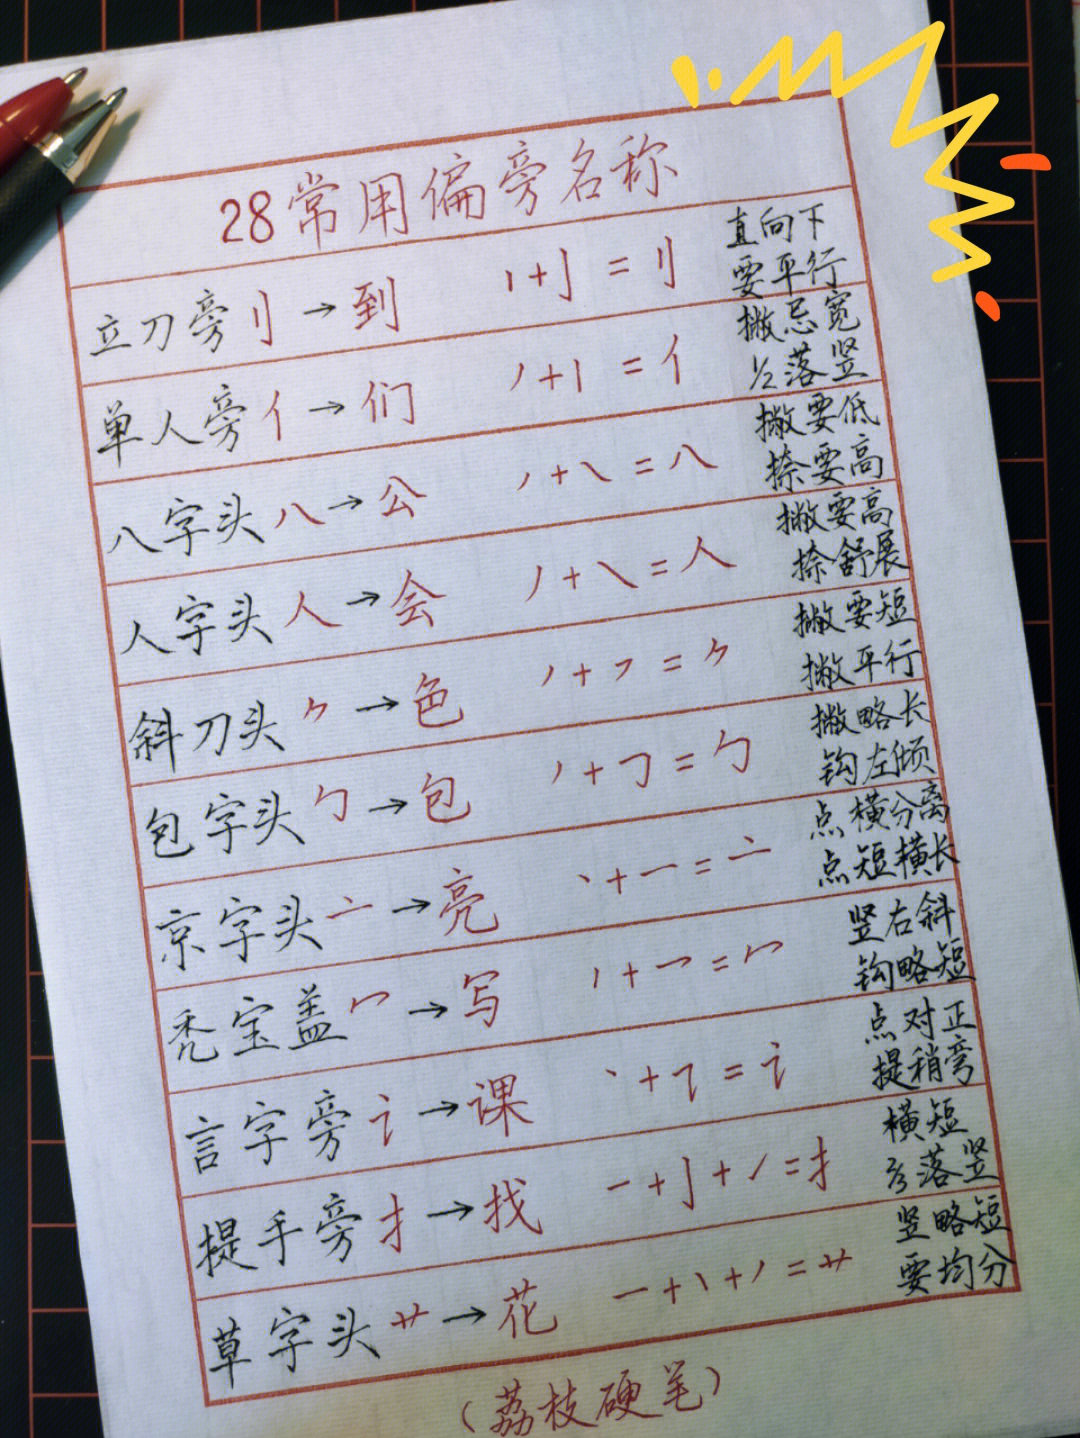 28常用偏旁名称
立刀旁刂→到 丨+亅=刂 直向下
要平行
单人旁亻→们 丿+丨=亻 撇忌宽
1/2落竖
八字头八→公 丿+㇏=八 撇要低
捺要高
人字头人→会 丿+㇏=人 撇要高
捺舒展
斜刀头⺈→色 丿+㇇=⺈ 撇要短
撇平行
包字头勹→包 丿+㇆=勹 撇略长
钩左倾
京字头亠→亮 丶+一=亠 点横分离
点短横长
秃宝盖冖→写 丨+乛=冖 竖右斜
钩略短
言字旁讠→课 丶+㇊=讠 点对正
提稍弯
提手旁扌→找 一+亅+㇀=扌 横短
2/3落竖
草字头艹→花 一+丨+丿=艹 竖略短
要均分
(荔枝硬笔)